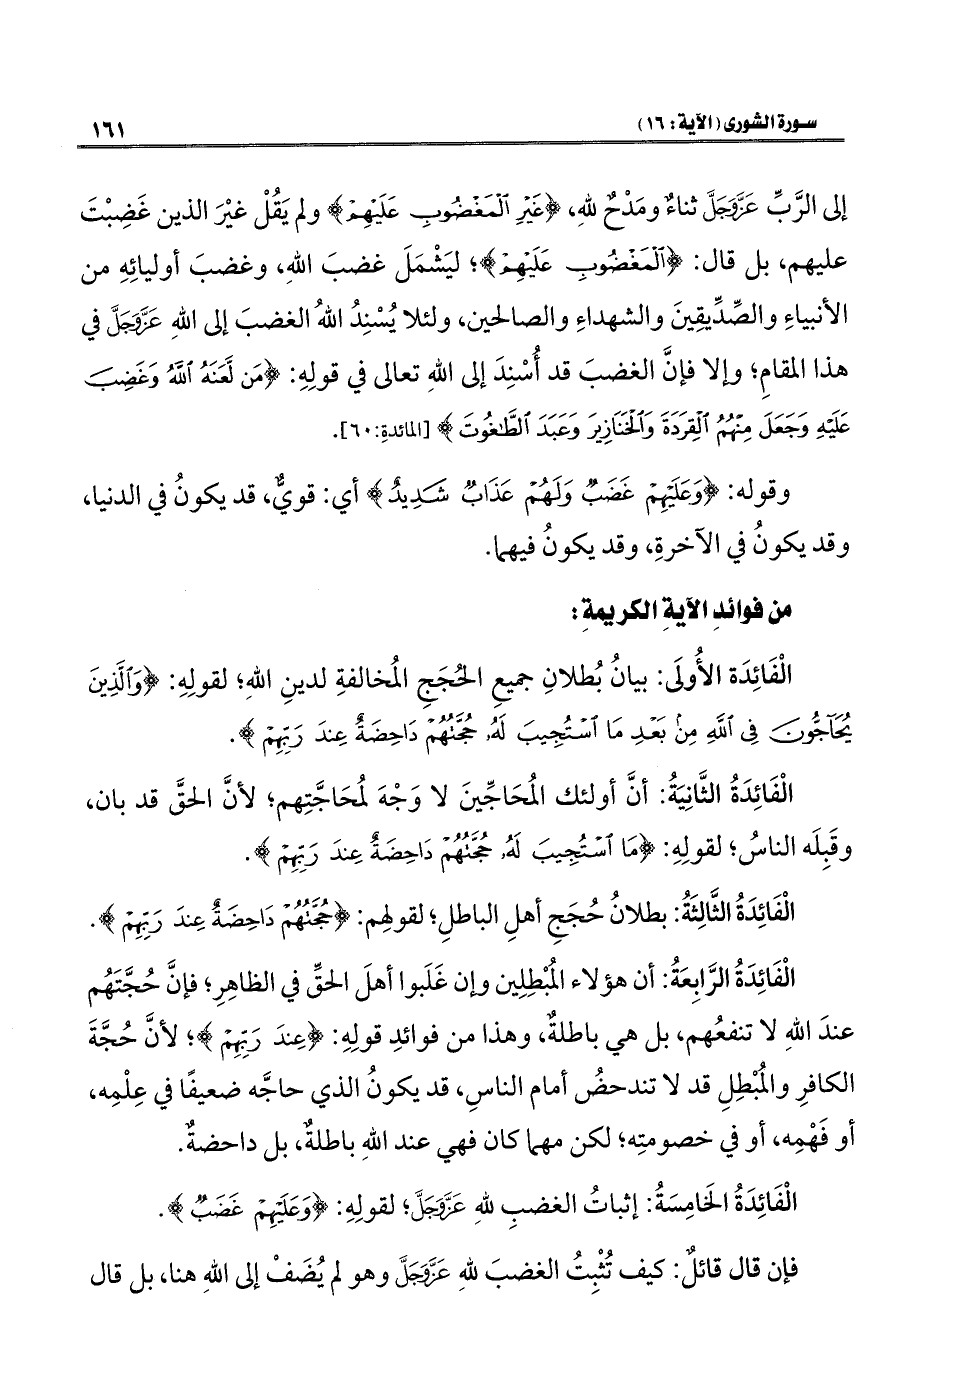 سورة الشورى (الآية: ١٦)
١٦١
إلى الرَّبِّ عَزَّوَجَلَّ ثناءٌ ومَدْحٌ للهِ، ﴿غَيْرِ ٱلْمَغْضُوبِ عَلَيْهِمْ﴾ ولم يَقُلْ غيْرَ الذين غَضِبْتَ
عليهم، بل قال: ﴿ٱلْمَغْضُوبِ عَلَيْهِمْ﴾؛ ليَشْمَلَ غضبَ اللهِ، وغضبَ أوليائِهِ من
الأنبياءِ والصِّدِّيقِينَ والشهداءِ والصالحين، ولئلا يُسْنِدُ اللهُ الغضبَ إلى اللهِ عَزَّوَجَلَّ في
هذا المقامِ؛ وإلا فإنَّ الغضبَ قد أُسْنِدَ إلى اللهِ تعالى في قولِهِ: ﴿مَن لَّعَنَهُ ٱللَّهُ وَغَضِبَ
عَلَيْهِ وَجَعَلَ مِنْهُمُ ٱلْقِرَدَةَ وَٱلْخَنَازِيرَ وَعَبَدَ ٱلطَّٰغُوتَ﴾ [المائدة:٦٠].
وقوله: ﴿وَعَلَيْهِمْ غَضَبٌ وَلَهُمْ عَذَابٌ شَدِيدٌ﴾ أي: قويٌّ، قد يكونُ في الدنيا،
وقد يكونُ في الآخرةِ، وقد يكونُ فيهما.
من فوائدِ الآيةِ الكريمةِ:
الْفَائِدَة الأُولَى: بيانُ بُطلانِ جميعِ الحُجَجِ المُخالفةِ لدينِ اللهِ؛ لقولِهِ: ﴿وَٱلَّذِينَ
يُحَآجُّونَ فِى ٱللَّهِ مِنۢ بَعْدِ مَا ٱسْتُجِيبَ لَهُۥ حُجَّتُهُمْ دَاحِضَةٌ عِندَ رَبِّهِمْ﴾.
الْفَائِدَةُ الثَّانِيَةُ: أنَّ أولئك المُحَاجِّينَ لا وَجْهَ لمُحَاجَّتِهم؛ لأنَّ الحقَّ قد بان،
وقَبِلَه الناسُ؛ لقولِهِ: ﴿مَا ٱسْتُجِيبَ لَهُۥ حُجَّتُهُمْ دَاحِضَةٌ عِندَ رَبِّهِمْ﴾.
الْفَائِدَةُ الثَّالِثَةُ: بطلانُ حُجَجِ أهلِ الباطلِ؛ لقولِهم: ﴿حُجَّتُهُمْ دَاحِضَةٌ عِندَ رَبِّهِمْ﴾.
الْفَائِدَةُ الرَّابِعَةُ: أن هؤلاء المُبْطِلِين وإن غَلَبوا أهلَ الحقِّ في الظاهرِ؛ فإنَّ حُجَّتَهُم
عندَ اللهِ لا تنفعُهم، بل هي باطلةٌ، وهذا من فوائدِ قولِهِ: ﴿عِندَ رَبِّهِمْ﴾؛ لأنَّ حُجَّةَ
الكافرِ والمُبْطِلِ قد لا تندحضُ أمام الناسِ، قد يكونُ الذي حاجَّه ضعيفًا في عِلْمِه،
أو فَهْمِه، أو في خصومتِه؛ لكن مهما كان فهي عند اللهِ باطلةٌ، بل داحضةٌ.
الْفَائِدَةُ الخَامِسَةُ: إثباتُ الغضبِ للهِ عَزَّوَجَلَّ؛ لقولِهِ: ﴿وَعَلَيْهِمْ غَضَبٌ﴾.
فإن قال قائلٌ: كيف تُثْبِتُ الغضبَ للهِ عَزَّوَجَلَّ وهو لم يُضَفْ إلى اللهِ هنا، بل قال